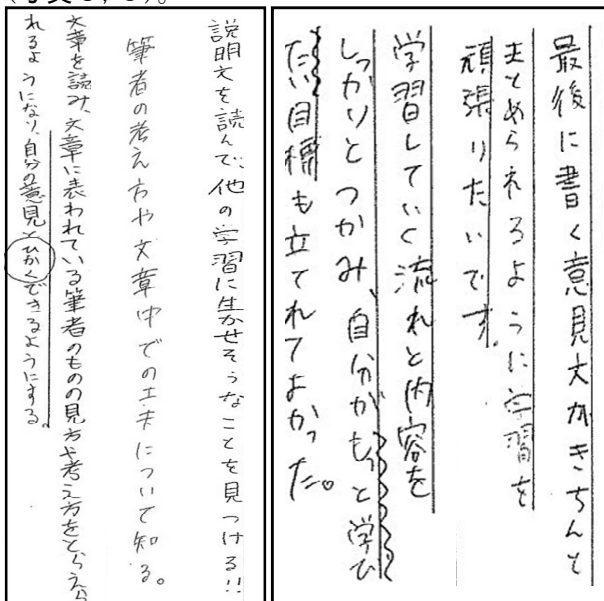 最後に書く意見文がきちんと
まとめられるように学習を
頑張りたいです。
学習していく流れと内容を
しっかりとつかみ、自分がもっと学び
たい目標も立てれてよかった。
説明文を読んで、他の学習に生かせそうなことを見つける!!
筆者の考え方や文章中での工夫について知る。
文章を読み、文章に表われている筆者のものの見方や考え方をとらえら
れるようになり、自分の意見とひかくできるようにする。